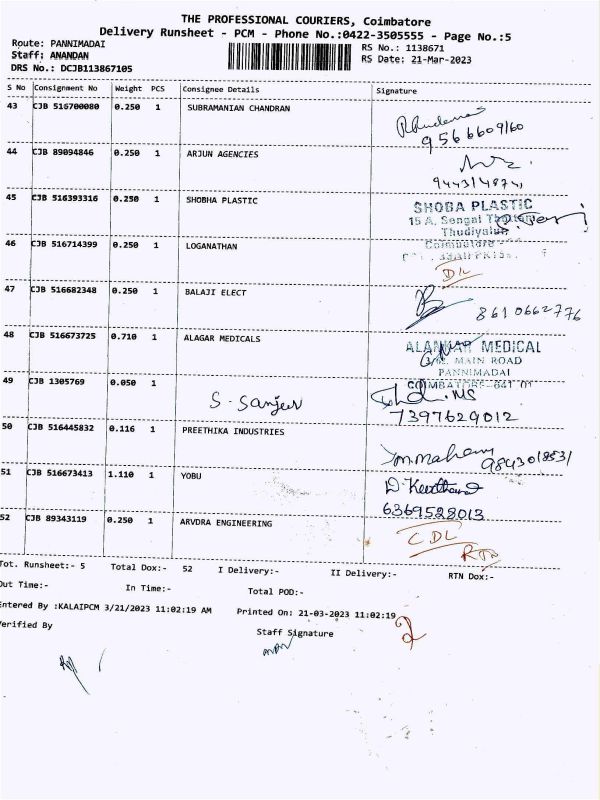 THE PROFESSIONAL COURIERS, Coimbatore
Delivery Runsheet - PCM - Phone No.:0422-3505555 - Page No.:5
Route: PANNIMADAI
RS No.: 1138671
Staff: ANANDAN
RS Date: 21-Mar-2023
DRS No.: DCJB113867105
S No Consignment No Weight PCS Consignee Details Signature
43 CJB 516700080 0.250 1 SUBRAMANIAN CHANDRAN
9566609160
44 CJB 89094846 0.250 1 ARJUN AGENCIES
45 CJB 516393316 0.250 1 SHOBHA PLASTIC
SHOBA PLASTIC
15 A, Sengal
Thudiyalur
Coimbatore
46 CJB 516714399 0.250 1 LOGANATHAN
DL
47 CJB 516682348 0.250 1 BALAJI ELECT
8610662776
48 CJB 516673725 0.710 1 ALAGAR MEDICALS
MEDICAL
MAIN ROAD
PANNIMADAI
49 CJB 1305769 0.050 1
COIMBATORE-641
S. Sanjeev
7397629012
50 CJB 516445832 0.116 1 PREETHIKA INDUSTRIES
9843018531
51 CJB 516673413 1.110 1 YOBU
6369528013
52 CJB 89343119 0.250 1 ARVDRA ENGINEERING
CDL
RTN
Tot. Runsheet:- 5 Total Dox:- 52 I Delivery:- II Delivery:- RTN Dox:-
Out Time:- In Time:- Total POD:-
Entered By :KALAIPCM 3/21/2023 11:02:19 AM Printed On: 21-03-2023 11:02:19
Verified By
Staff Signature